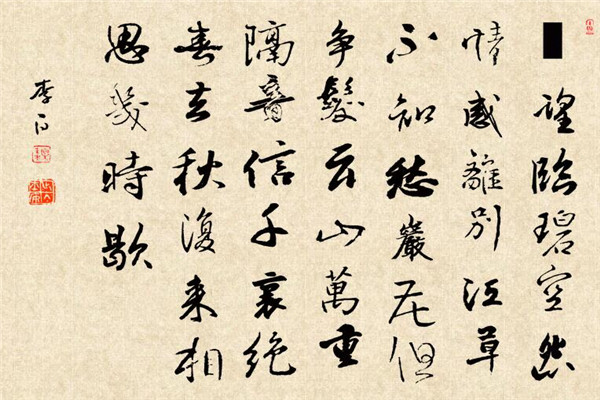 望臨碧空怨
情感離別江草
不知愁巖花但
争髮云山萬重
隔音信千裏絶
春去秋復来相
思幾時歇
李白